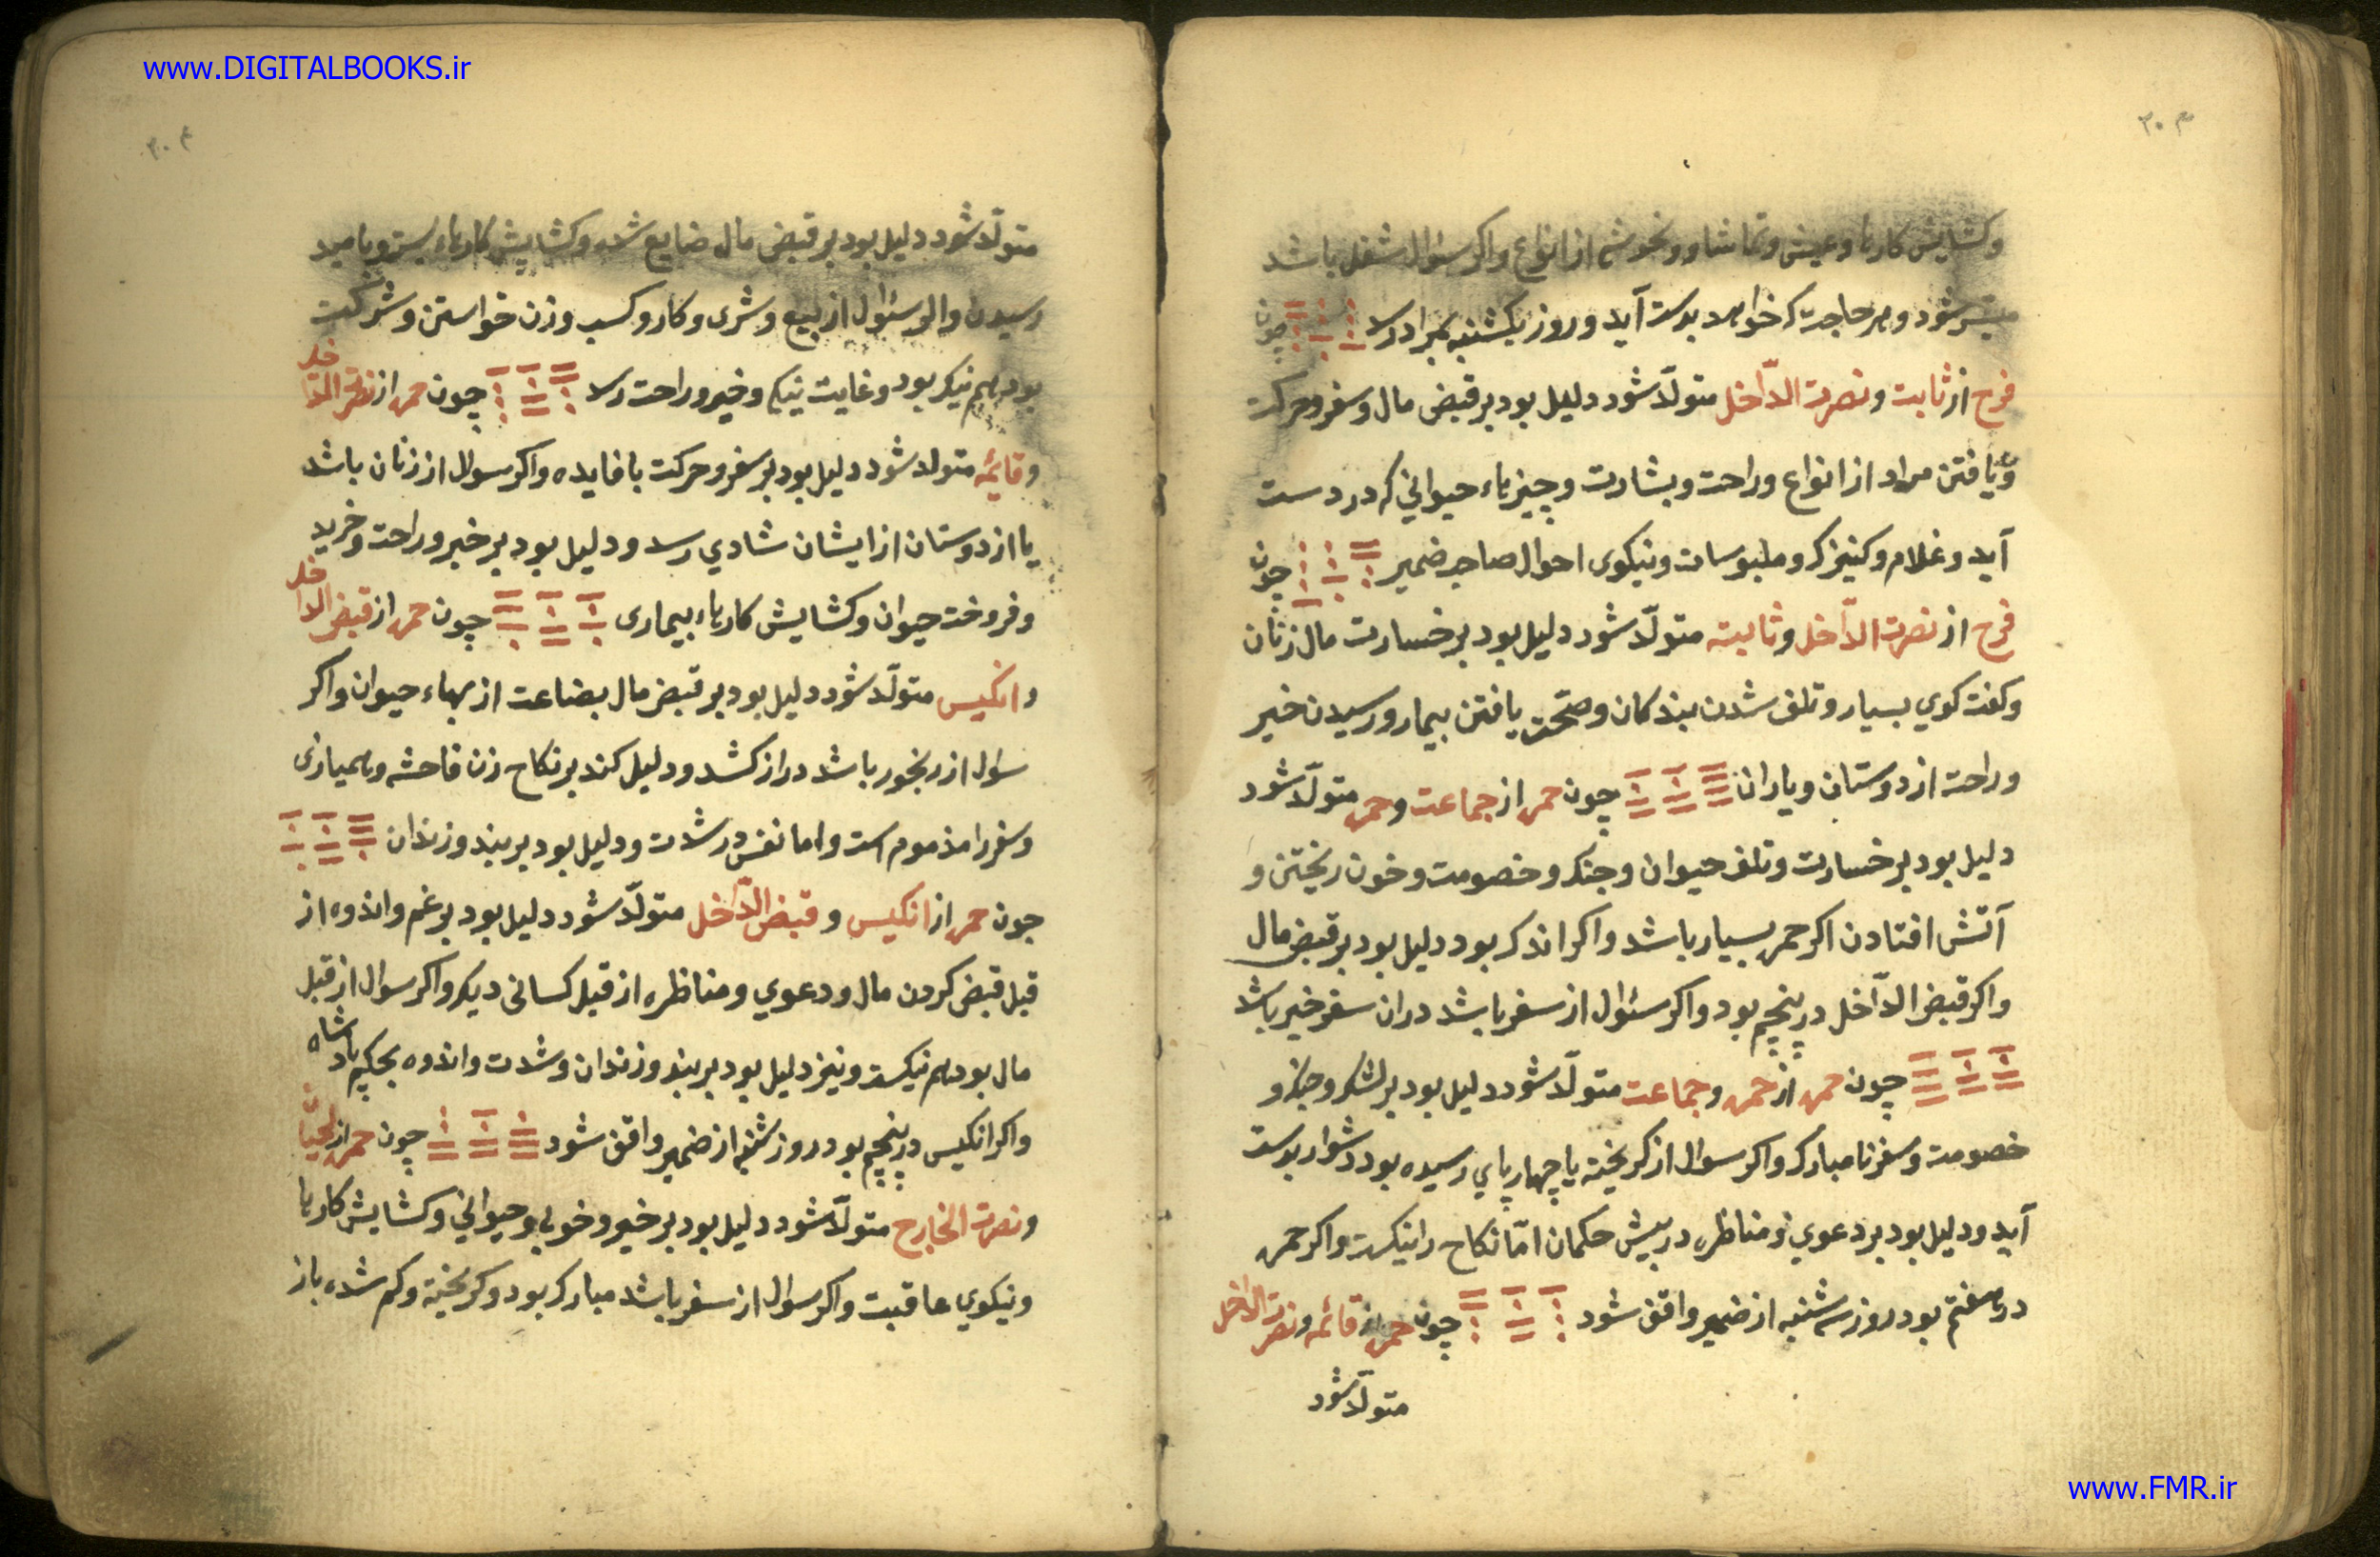 www.DIGITALBOOKS.ir
۳۰۳
وکشایش کارها وعیش وتماشا و از انواع واکر سئوال شغل باشد
میسر شود وهر حاجت که خواهد بدست آید و روز یکشنبه بمراد رسد چون
فرح از ثابت ونصرت الدّاخل متولّد شود دلیل بود بر قبض مال وسفر وحرکت
ویافتن مراد از انواع وراحت وبشارت وچیزهاء حیوانی که در دست
آید وغلام وکنیزک وملبوسات ونیکوی احوال صاحب ضمیر چون
فرح از نصرت الدّاخل وثابته متولّد شود دلیل بود بر خسارت مال زنان
وکفت کوی بسیار وتلف شدن بندکان وصحّت یافتن بیمار ورسیدن خیر
وراحت از دوستان ویاران چون حمره از جماعت وحمره متولّد شود
دلیل بود بر خسارت وتلف حیوان وجنک وخصومت وخون ریختن و
آتش افتادن اکر حمره بسیار باشد واکر اندک بود دلیل بود بر قبض مال
واکر قبض الدّاخل در پنجم بود واکر سئوال از سفر باشد دران سفر خیر باشد
چون حمره از حمره وجماعت متولّد شود دلیل بود بر لشکر وجنک و
خصومت وسفر نامبارک واکر سوال از کریخته یا چهارپای رسیده بود دشوار بدست
آید ودلیل بود بر دعوی ومناظره در پیش حکمان امّا نکاح را نیکست واکر حمره
در هفتم بود روز سه شنبه از ضمیر واقف شود چون حمره از قائمه ونصرت الداخل
متولّد شود
۳۰۴
متولّد شود دلیل بود بر قبض مال ضایع شده وکشایش کارهاء بسته وبامید
رسیدن واکر سئوال از بیع وشری وکار وکسب وزن خواستن وشرکت
بود هم نیکو بود وغایت نیکی وخیر وراحت رسد چون حمره از نصرت الداخل
وقایمه متولد شود دلیل بود بر سفر وحرکت با فایده واکر سوال از زنان باشد
یا از دوستان از ایشان شادی رسد ودلیل بود بر خیر وراحت وخرید
وفروخت حیوان وکشایش کارهاء بیماری چون حمره از قبض الداخل
وانکیس متولّد شود دلیل بود بر قبض مال بضاعت از بهاء حیوان واکر
سوال از رنجور باشد دراز کشد ودلیل کند بر نکاح زن فاحشه
وسفر را مذموم است واما نفس در شدت ودلیل بود بر بند وزندان
چون حمره از انکیس وقبض الدّاخل متولّد شود دلیل بود بر غم واندوه از
قبل قبض کردن مال ودعوی ومناظره از قبل کسانی دیکر واکر سوال از قبل
مال بود هم نیکست ونیز دلیل بود بر بند وزندان وشدت واندوه بحکم پادشاه
واکر انکیس در پنجم بود روز شنبه از ضمیر واقف شود چون حمره از لحیان
ونصرت الخارج متولّد شود دلیل بود بر خیر وخوبی وحیوانی وکشایش کارها
ونیکوی عاقبت واکر سوال از سفر باشد مبارک بود وکریخته وکم شده باز
www.FMR.ir